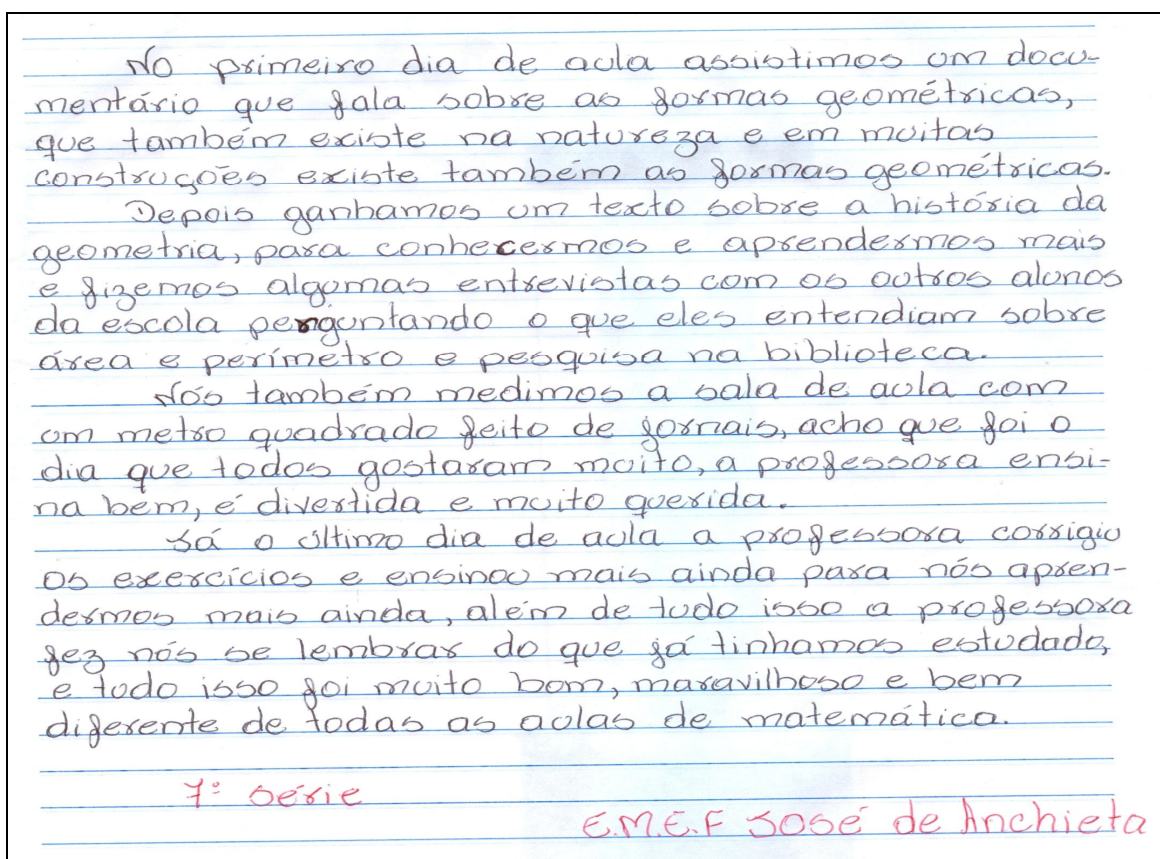 No primeiro dia de aula assistimos um docu-
mentário que fala sobre as formas geométricas,
que também existe na natureza e em muitas
construções existe também as formas geométricas.
Depois ganhamos um texto sobre a história da
geometria, para conhecermos e aprendermos mais
e fizemos algumas entrevistas com os outros alunos
da escola perguntando o que eles entendiam sobre
área e perímetro e pesquisa na biblioteca.
Nós também medimos a sala de aula com
um metro quadrado feito de jornais, acho que foi o
dia que todos gostaram muito, a professora ensi-
na bem, é divertida e muito querida.
Já o último dia de aula a professora corrigiu
os exercícios e ensinou mais ainda para nós apren-
dermos mais ainda, além de tudo isso a professora
fez nós se lembrar do que já tinhamos estudado,
e tudo isso foi muito bom, maravilhoso e bem
diferente de todas as aulas de matemática.
7ª série
E.M.E.F José de Anchieta